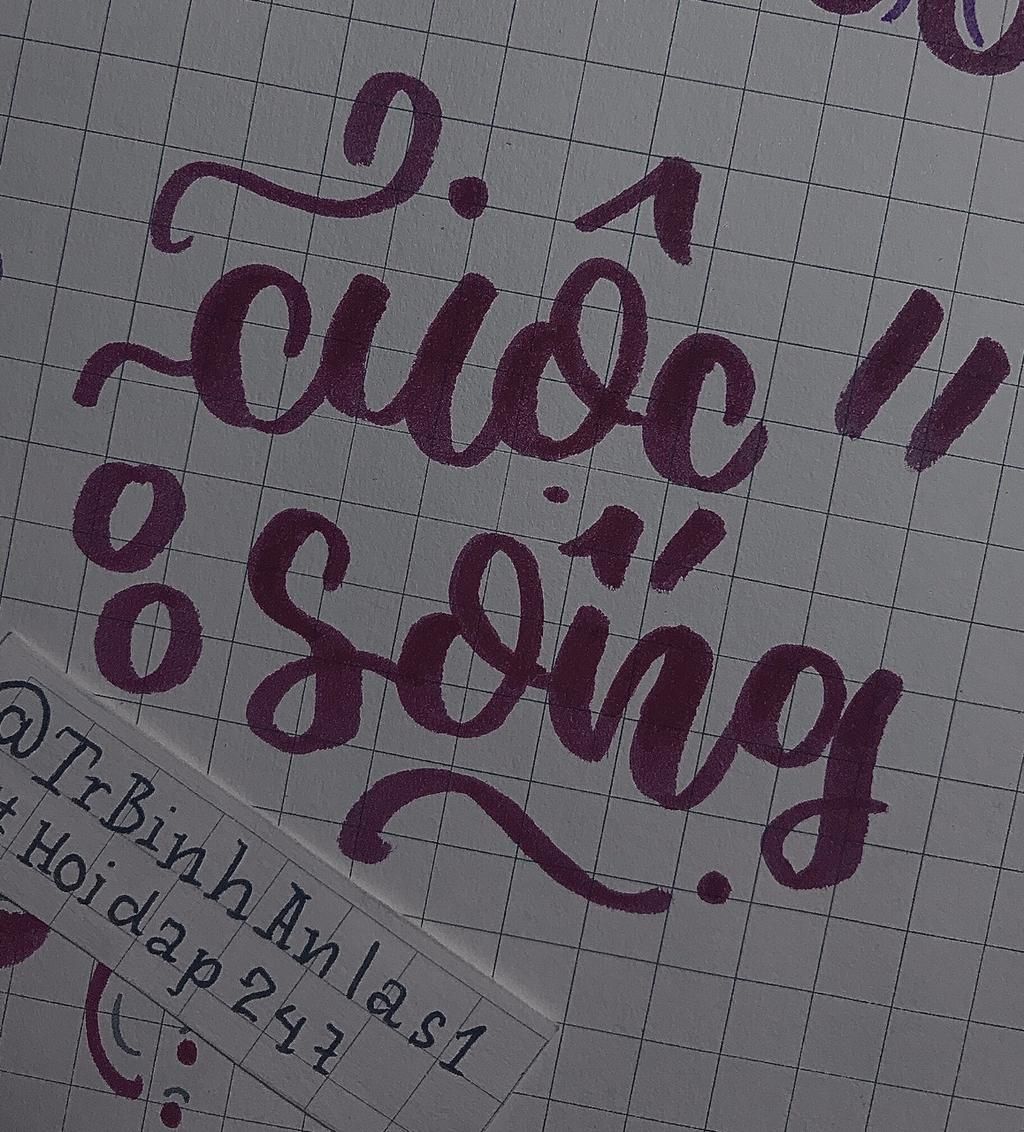 cuộc
sống
@TrBinhAnlas1
#Hoidap247